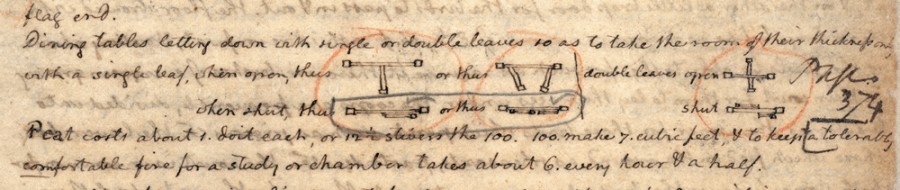 flag end.
Dining tables letting down with single or double leaves so as to take the room of their thickness only
with a single leaf, when open, thus or thus double leaves open
when shut, thus or thus shut
Page
374
Peat costs about 1. doit each, or 12½ stivers the 100. 100. make 7. cubic feet, & to keep a tolerably
comfortable fire for a study or chamber takes about 6. every hour & a half.